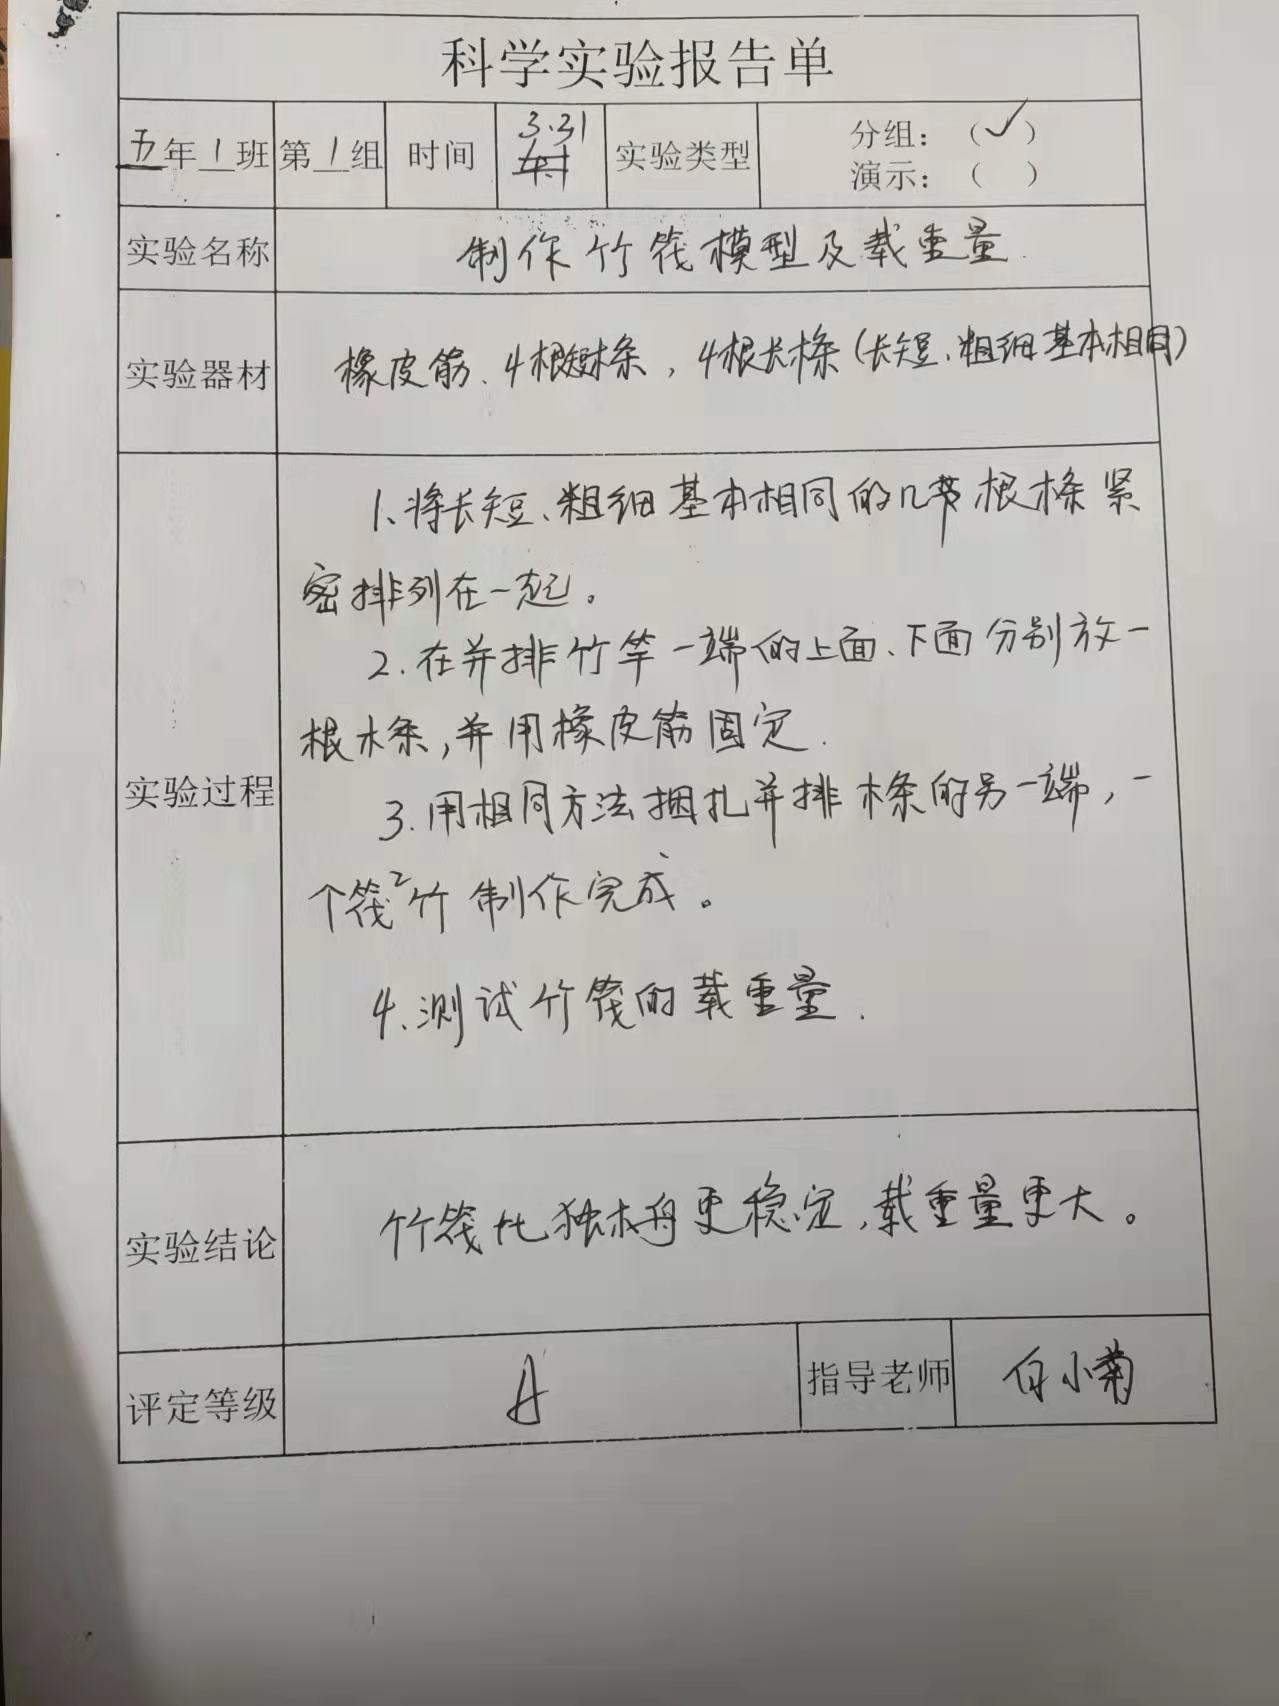 科学实验报告单
五年1班 第1组 时间 3.31 实验类型 分组：（✓）
演示：（ ）
实验名称 制作竹筏模型及载重量
实验器材 橡皮筋、4根短木条，4根长木条（长短、粗细基本相同）
1、将长短、粗细基本相同的几节根木条紧
密排列在一起。
2.在并排竹竿一端的上面、下面分别放一
根木条，并用橡皮筋固定.
实验过程
3.用相同方法捆扎并排木条的另一端，一
个筏竹制作完成。
4、测试竹筏的载重量.
实验结论 竹筏比独木舟更稳定，载重量更大。
评定等级 A 指导老师 白小菊